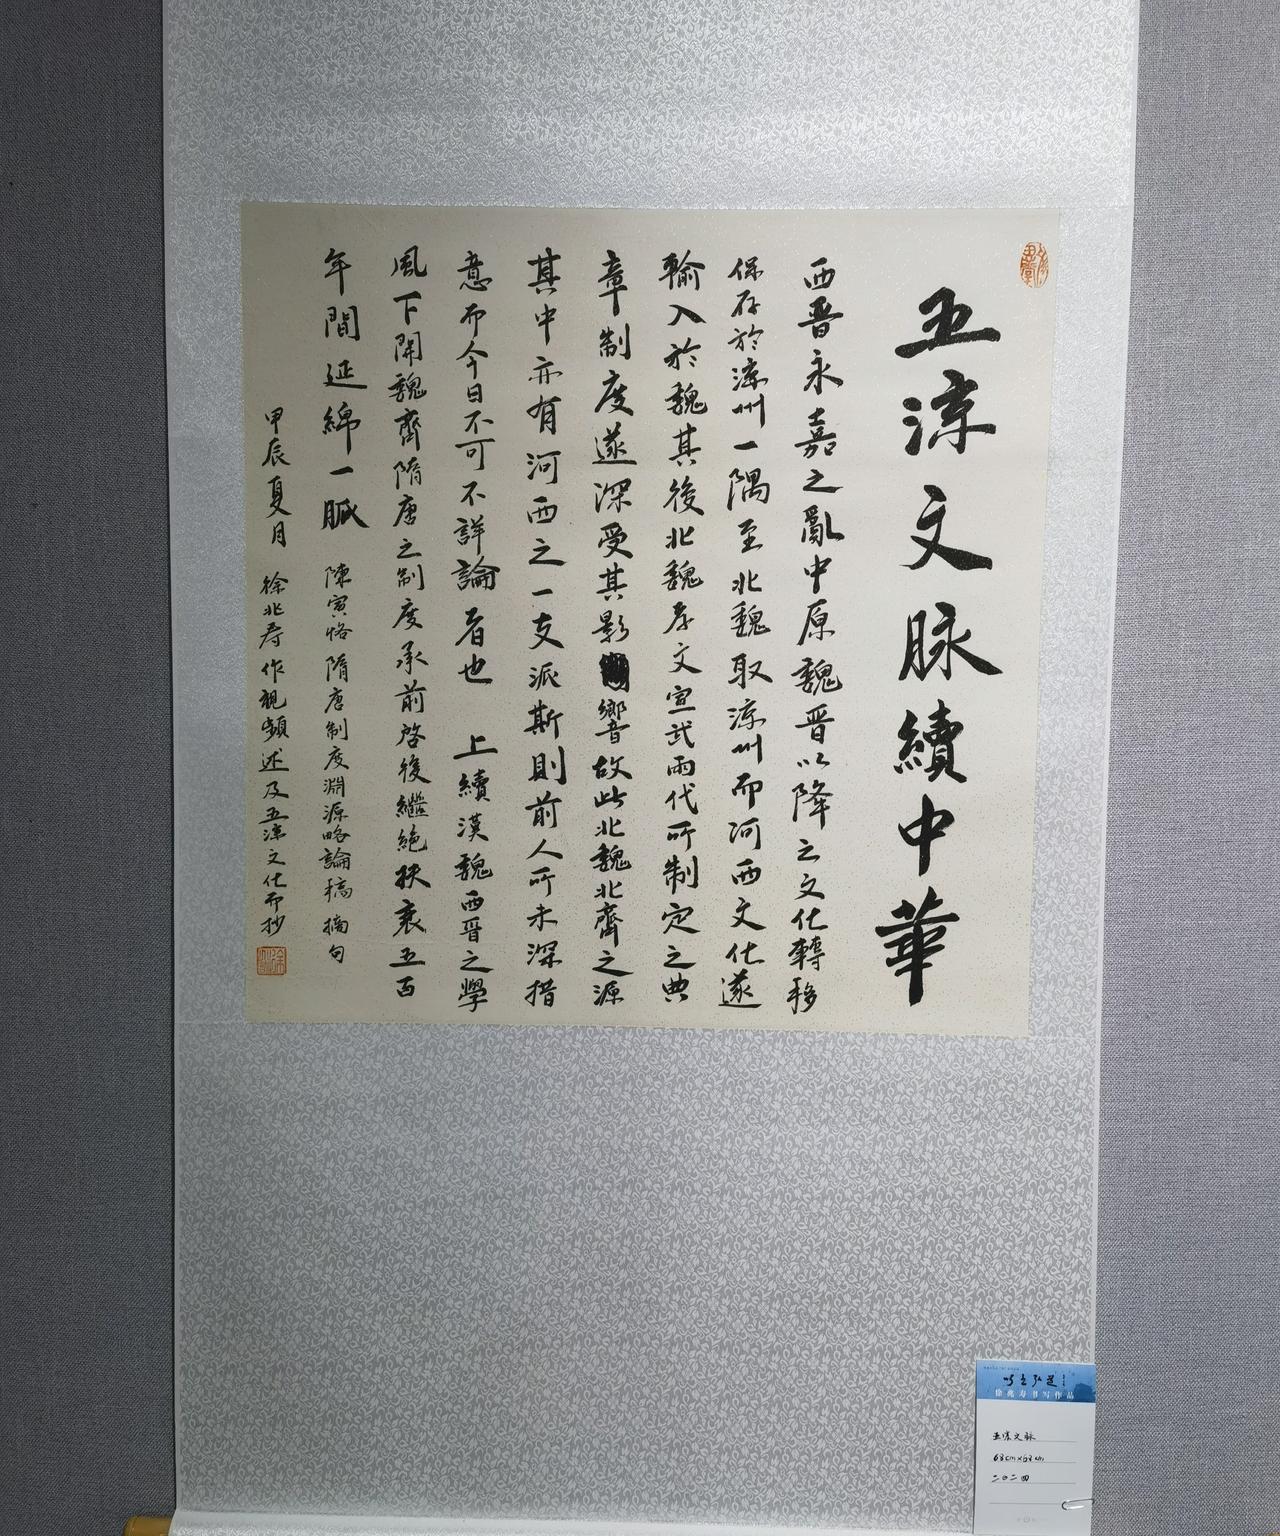 五涼文脉續中華
西晉永嘉之亂中原魏晉以降之文化轉移
保存於涼州一隅至北魏取涼州而河西文化遂
輸入於魏其後北魏孝文宣武兩代所制定之典
章制度遂深受其影響故此北魏北齊之源
其中亦有河西之一支派斯則前人所未深措
意而今日不可不詳論者也 上續漢魏西晉之學
風下開魏齊隋唐之制度承前啓後繼絕扶衰五百
年間延綿一脈 陳寅恪隋唐制度淵源略論稿摘句
甲辰夏月 徐兆寿作視頻述及五涼文化而抄
徐兆寿书写作品
五凉文脉
68cm×68cm
二〇二四